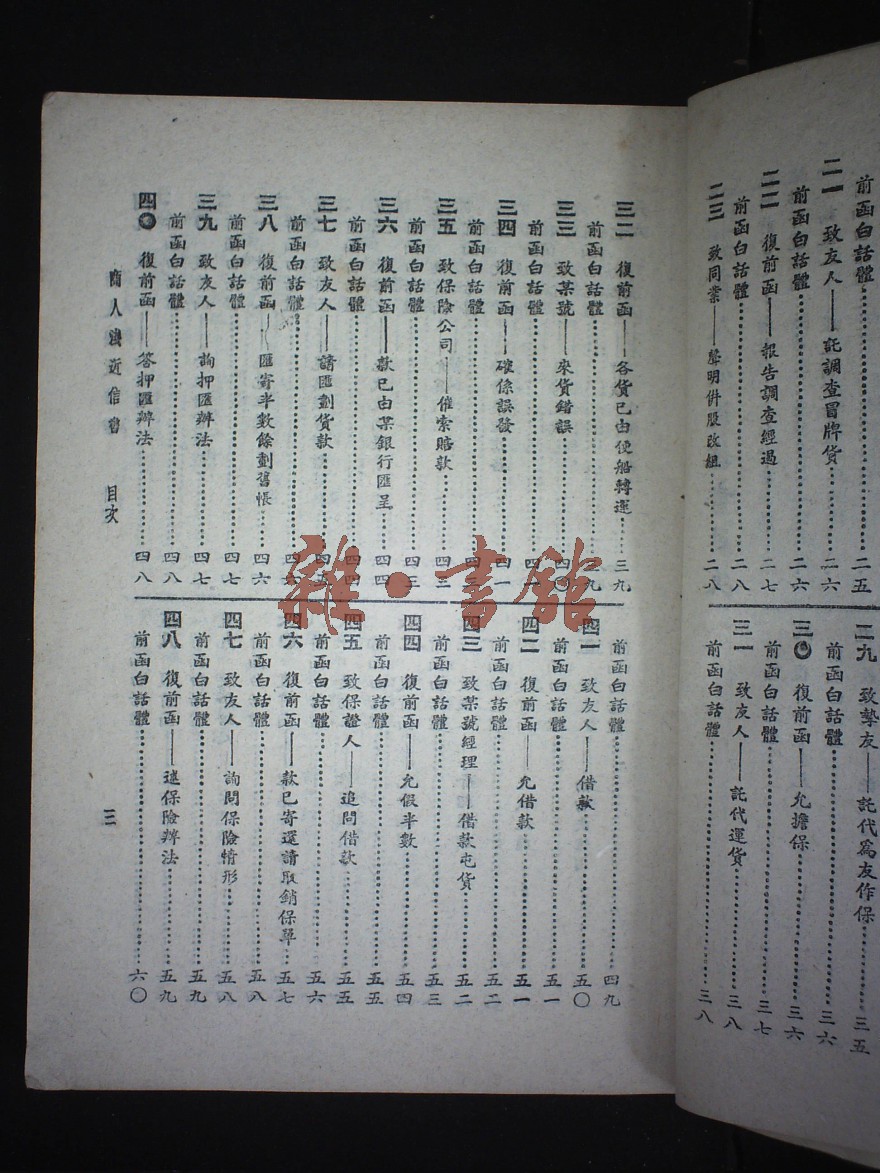 前函白話體……二五
二一 致友人——託調查冒牌貨……二六
前函白話體……二六
二二 復前函——報告調查經過……二七
前函白話體……二八
二三 致同業——聲明併股改組……二八
二九 致摯友——託代爲友作保……三五
前函白話體……三六
三〇 復前函——允擔保……三六
前函白話體……三七
三一 致友人——託代運貨……三八
前函白話體……三八
三二 復前函——各貨已由便船轉運……三九
前函白話體……九
三三 致某號——來貨錯誤……四〇
前函白話體……四一
三四 復前函——確係誤發……四一
前函白話體……四二
三五 致保險公司——催索賠款……四二
前函白話體……四三
三六 復前函——款已由某銀行匯呈……四四
前函白話體……四四
三七 致友人——請匯劃貨款……四五
前函白話體……四六
三八 復前函——匯寄半數餘劃舊帳……四六
前函白話體……四七
三九 致友人——詢押匯辦法……四七
前函白話體……四八
四〇 復前函——答押匯辦法……四八
前函白話體……四九
四一 致友人——借款……五〇
前函白話體……五一
四二 復前函——允借款……五一
前函白話體……五二
四三 致某號經理——借款屯貨……五二
前函白話體……五三
四四 復前函——允假半數……五四
前函白話體……五五
四五 致保證人——追問借款……五五
前函白話體……五六
四六 復前函——款已寄還請取銷保單……五七
前函白話體……五八
四七 致友人——詢問保險情形……五八
前函白話體……五九
四八 復前函——述保險辦法……五九
前函白話體……六〇
商人淺近信書 目次 三
雜·書館